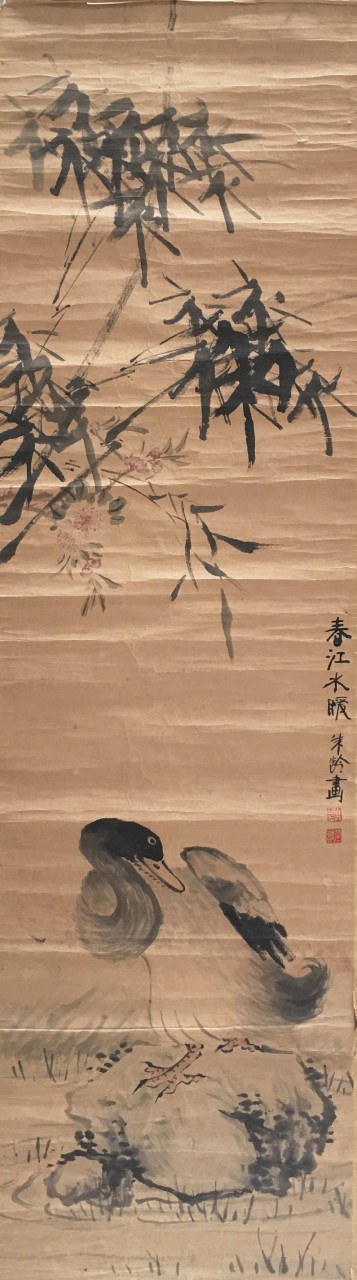 春江水暖
朱龄畫